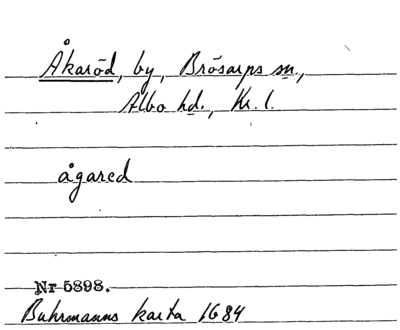 Åkaröd, by, Brösarps sn.,
Albo hd., Kr. l.
ågared
Nr 5898.
Buhrmanns karta 1684